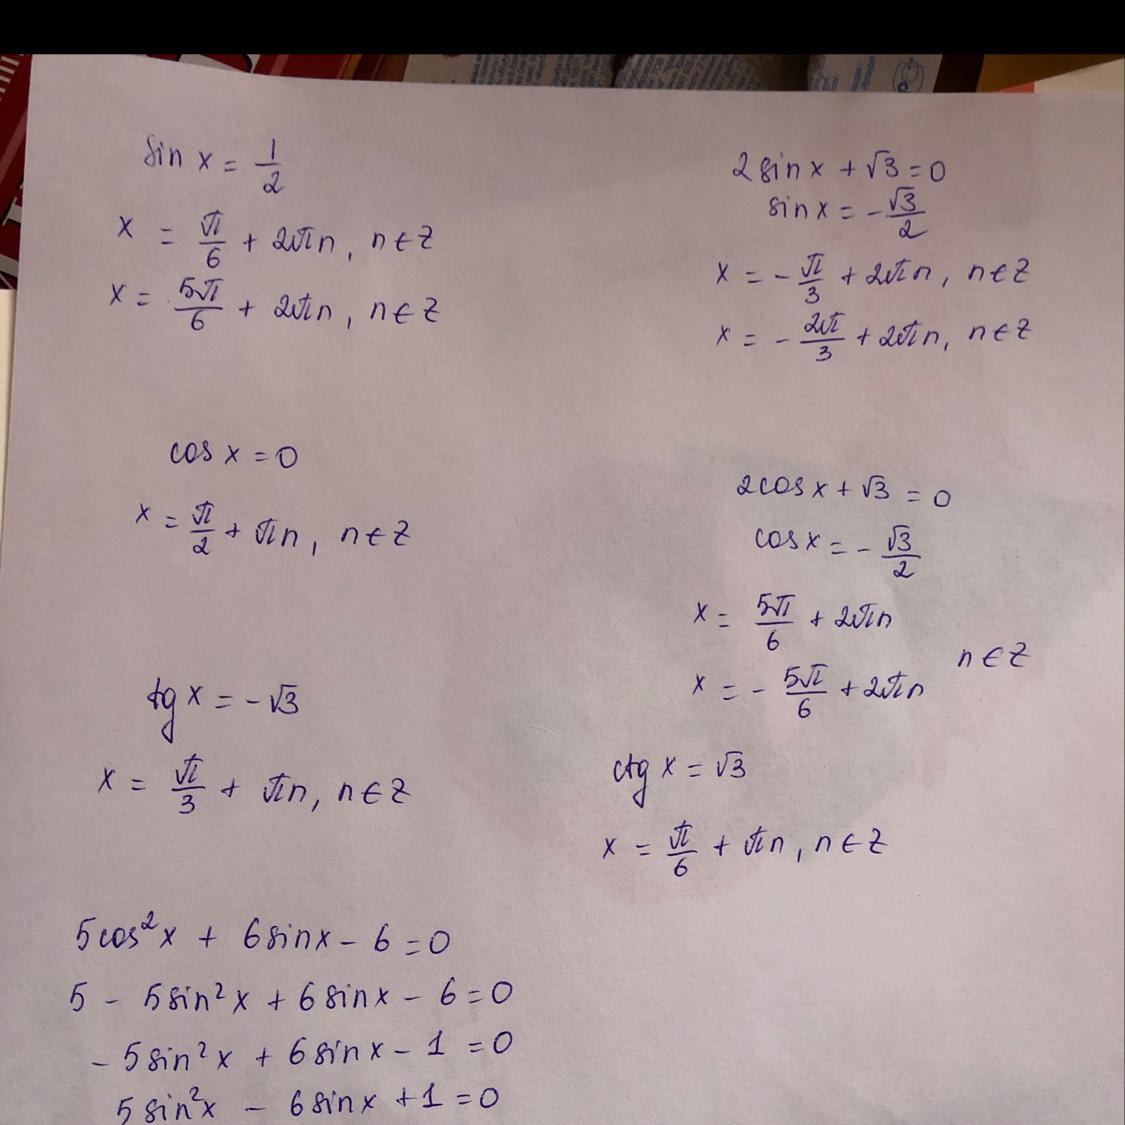 sin x = 1/2
x = π/6 + 2πn, n∈Z
x = 5π/6 + 2πn, n∈Z
2sinx + √3 = 0
sinx = -√3/2
x = -π/3 + 2πn, n∈Z
x = -2π/3 + 2πn, n∈Z
cos x = 0
x = π/2 + πn, n∈Z
2cosx + √3 = 0
cosx = -√3/2
x = 5π/6 + 2πn
x = -5π/6 + 2πn
n∈Z
tg x = -√3
x = π/3 + πn, n∈Z
ctg x = √3
x = π/6 + πn, n∈Z
5cos²x + 6sinx - 6 = 0
5 - 5sin²x + 6sinx - 6 = 0
- 5sin²x + 6sinx - 1 = 0
5sin²x - 6sinx + 1 = 0